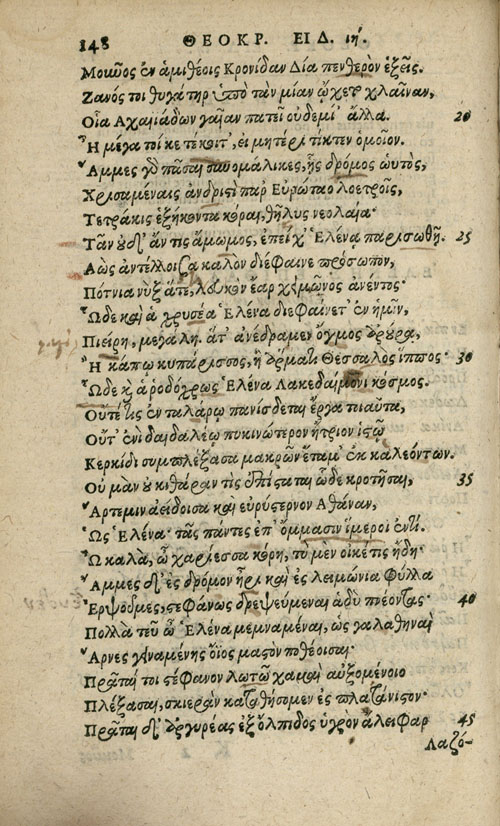 148 ΘΕΟΚΡ. ΕΙΔ. ιή.
Μοῦνος ἐν ἁμιθέοις Κρονίδαν Δία πενθερὸν ἑξεῖς.
Ζανός τοι θυγάτηρ ὑπὸ τὰν μίαν ᾤχετο χλαῖναν,
Οἵα Ἀχαιιάδων γαῖαν πατεῖ οὐδεμί' ἄλλα. 20
Ἦ μέγα τοί κε τέκοιτ', εἰ μητέρι τίκτεν ὁμοῖον.
Ἄμμες γὸ πᾶσαι συνομάλικες, ᾗς δρόμος ωὑτὸς,
Χρισαμέναις ἀνδριστὶ παρ' Εὐρώταο λοετροῖς,
Τετράκις ἑξήκοντα κόραι, θῆλυς νεολαία·
Τᾶν οὐδ' ἄν τις ἄμωμος, ἐπεί χ' Ἑλένᾳ παρισωθῇ. 25
Ἀὼς ἀντέλλοισα καλὸν διέφαινε πρόσωπον,
Πότνια νὺξ ἅτε, λευκὸν ἔαρ χειμῶνος ἀνέντος·
Ὧδε καὶ ἁ χρυσέα Ἑλένα διεφαίνετ' ἐν ἡμῖν,
Πιείρῃ, μεγάλη. ἅτ' ἀνέδραμεν ὄγμος ἀρούρᾳ,
Ἢ κάπῳ κυπάρισσος, ἢ ἅρματι Θεσσαλὸς ἵππος· 30
Ὧδε κ̀ ἁ ῥοδόχρως Ἑλένα Λακεδαίμονι κόσμος.
Οὔτέ τις ἐν ταλάρῳ πανίσδεται ἔργα τοιαῦτα,
Οὔτ' ἐνὶ δαιδαλέῳ πυκινώτερον ἤτριον ἱστῷ
Κερκίδι συμπλέξασα μακρῶν ἔταμ' ἐκ καλεόντων.
Οὐ μὰν οὐ κιθάραν τὶς ἐπίσταται ὧδε κροτῆσαι, 35
Ἄρτεμιν ἀείδοισα καὶ εὐρύστερνον Ἀθάναν,
Ὡς Ἑλένα· τᾶς πάντες ἐπ' ὄμμασιν ἵμεροι ἐντί.
Ὦ καλὰ, ὦ χαρίεσσα κόρη, τὺ μὲν οἰκέτις ἤδη·
Ἄμμες δ' ἐς δρόμον ἦρι καὶ ἐς λειμώνια φύλλα
Ἑρψοῦμες, στεφάνως δρεψεύμεναι ἁδὺ πνέοντας· 40
Πολλὰ τεῦ ὦ Ἑλένα μεμναμέναι, ὡς γαλαθηναὶ
Ἄρνες γειναμένης ὄϊος μαστὸν ποθέοισαι·
Πρᾶταί τοι στέφανον λωτῶ χαμαὶ αὐξομένοιο
Πλέξασαι, σκιερὰν καταθήσομεν ἐς πλατάνιστον·
Πρᾶται δ' ἀργυρέας ἐξ ὄλπιδος ὑγρὸν ἄλειφαρ 45
Λαζό-